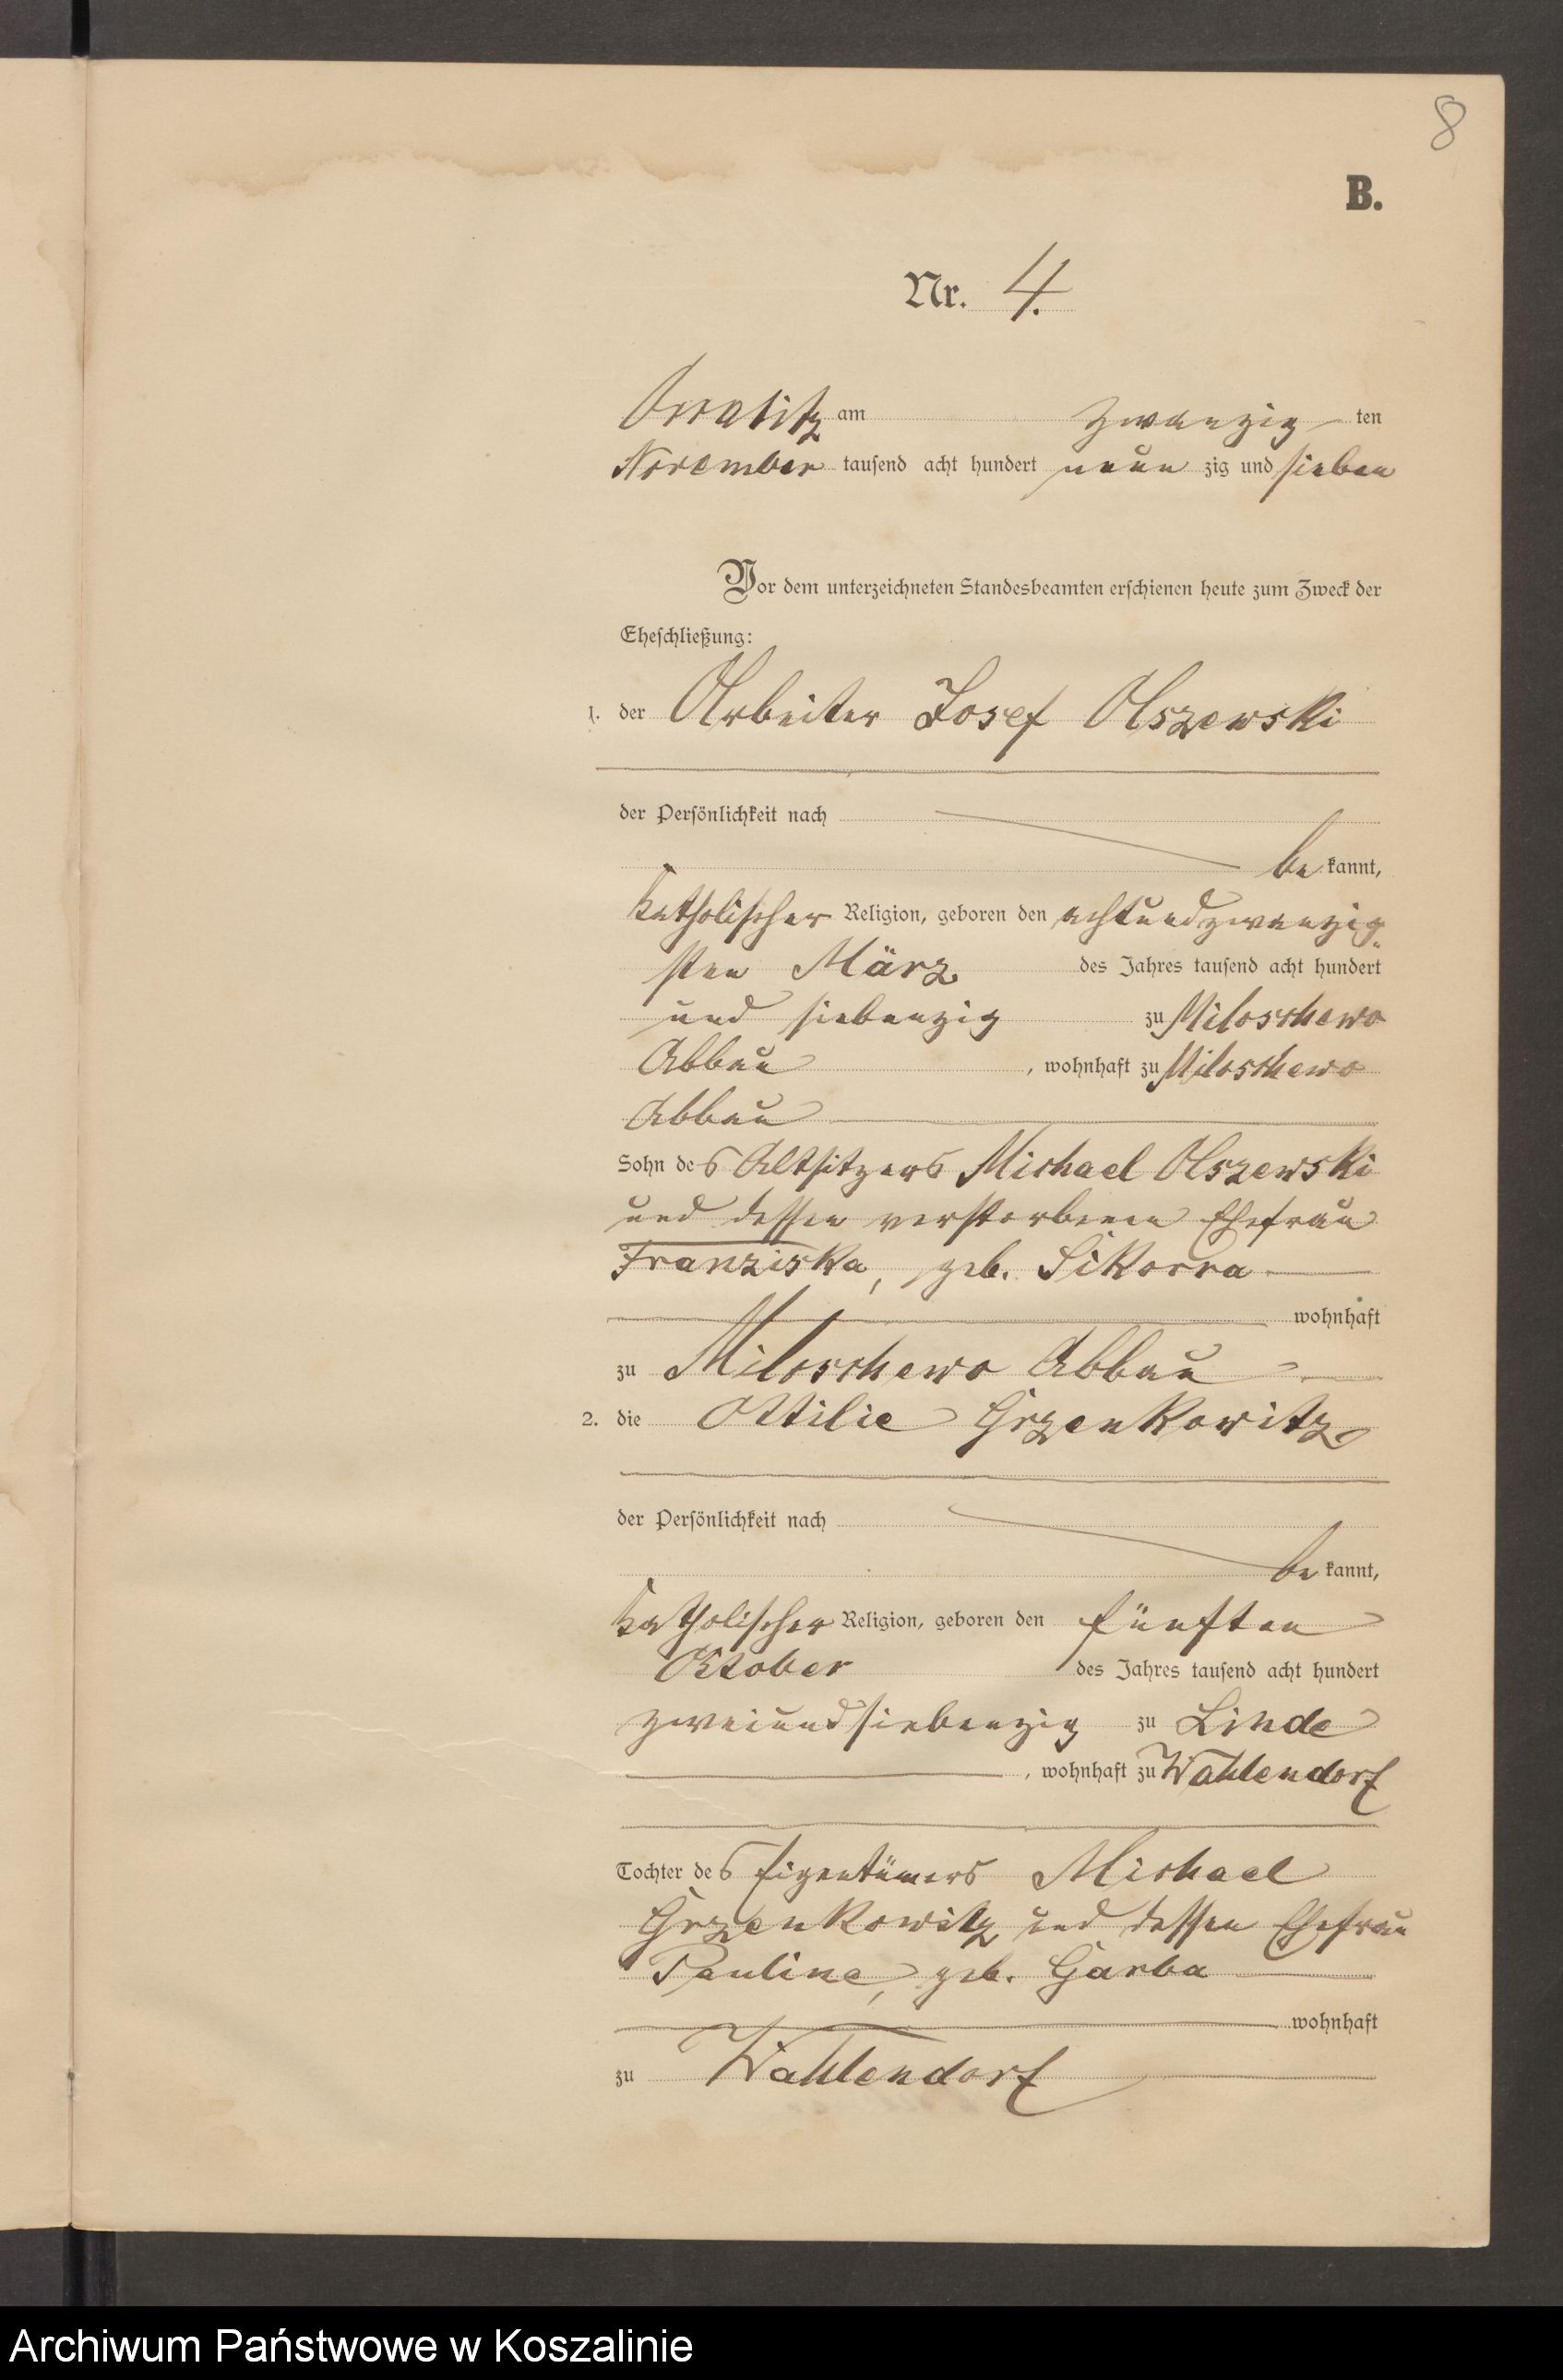 8
B.
Nr. 4.
am zwanzig ten
November tausend acht hundert neun zig und sieben
Vor dem unterzeichneten Standesbeamten erschienen heute zum Zweck der
Eheschließung:
1. der Arbeiter Josef Olszewski
der Persönlichkeit nach
be kannt,
katholischer Religion, geboren den achtundzwanzig
sten März des Jahres tausend acht hundert
und siebenzig zu Miloschewo
Abbau, wohnhaft zu Miloschewo
Abbau
Sohn des Altsitzers Michael Olszewski
und dessen verstorbenen Ehefrau
Franziska, geb. Sikorra
wohnhaft
zu Miloschewo Abbau
2. die Ottilie Grzenkowitz
der Persönlichkeit nach
be kannt,
katholischer Religion, geboren den fünften
Oktober des Jahres tausend acht hundert
zweiundsiebenzig zu Linde
, wohnhaft zu Wahlendorf
Tochter des Eigentümers Michael
Grzenkowitz und dessen Ehefrau
Pauline, geb. Garba
wohnhaft
zu Wahlendorf
Archiwum Państwowe w Koszalinie